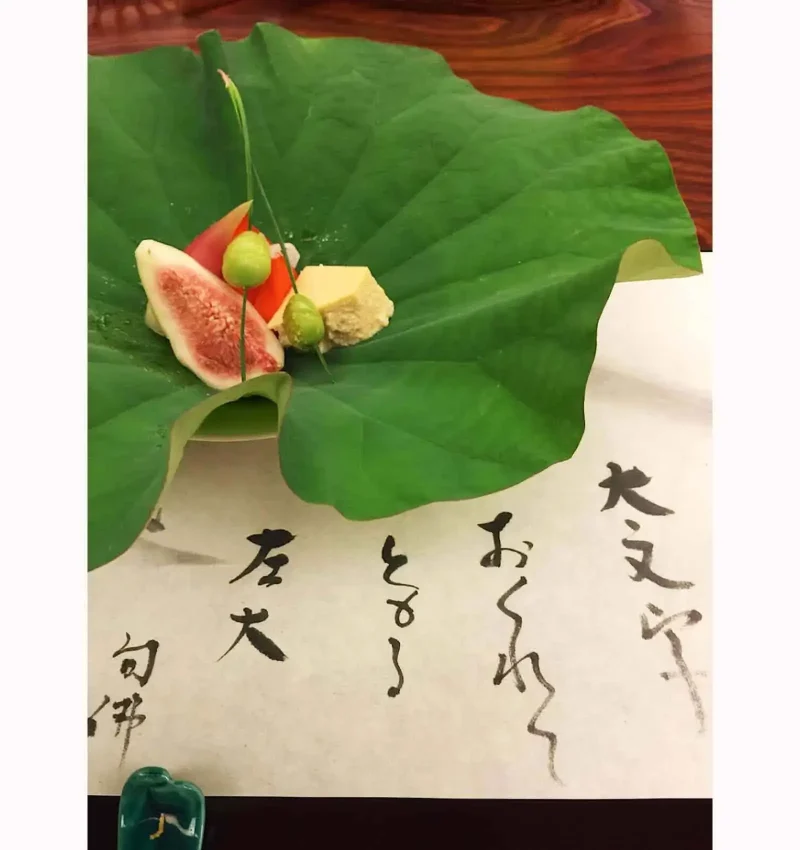 大文字
おくれて
ともる
左大
句佛